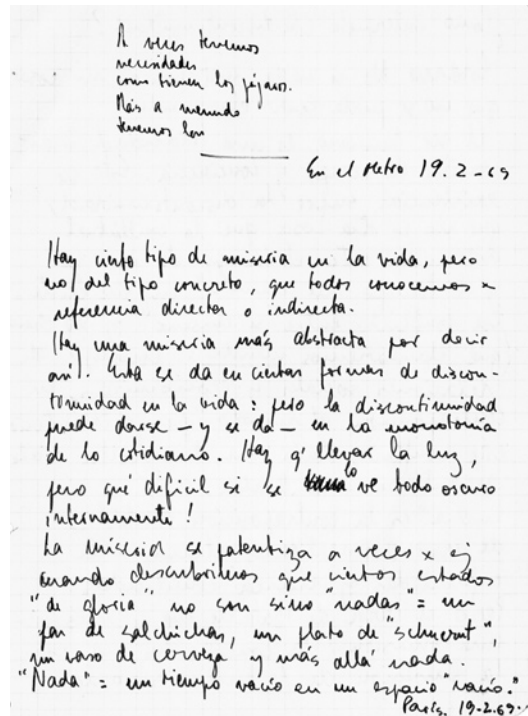 A veces tenemos
necesidades
como tienen los pájaros.
Más a menudo
tenemos las
En el Metro 19.2-69
Hay cierto tipo de miseria en la vida, pero
no del tipo concreto, que todos conocemos x
referencia directa o indirecta.
Hay una miseria más abstracta por decir
así. Esta se da en ciertas formas de discon-
tinuidad en la vida: pero la discontinuidad
puede darse - y se da - en la monotonía
de lo cotidiano. Hay q' llegar la luz,
pero qué difícil si se lo ve todo oscuro
internamente!
La miseria se patentiza a veces x ej
cuando descubrimos que ciertos estados
"de gloria" no son sino "nadas" = un
par de salchichas, un plato de "schucrut",
un vaso de cerveza y más allá nada.
"Nada" = un tiempo vacío en un espacio "vacío."
París. 19-2.69.